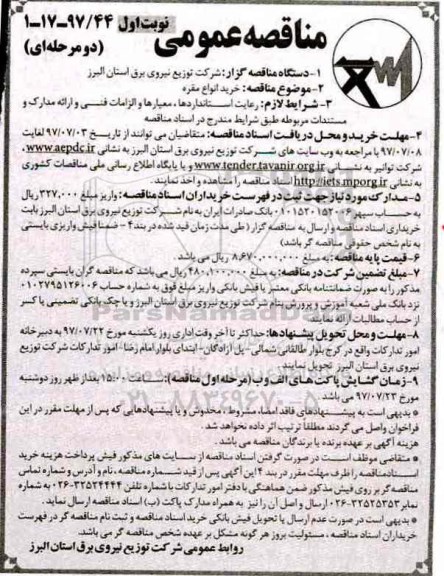 مناقصه عمومی
نوبت اول ۹۷/۴۴-۱۷-۱
(دو مرحله‌ای)
۱-دستگاه مناقصه گزار: شرکت توزیع نیروی برق استان البرز
۲-موضوع مناقصه: خرید انواع مقره
۳- شرایط لازم: رعایت استانداردها، معیارها و الزامات فنی و ارائه مدارک و
مستندات مربوطه طبق شرایط مندرج در اسناد مناقصه
۴-مهلت خرید و محل دریافت اسناد مناقصه: متقاضیان می توانند از تاریخ ۹۷/۰۷/۰۳ لغایت
۹۷/۰۷/۰۸ با مراجعه به وب سایت های شرکت توزیع نیروی برق استان البرز به نشانی www.aepdc.ir،
شرکت توانیر به نشانی www.tender.tavanir.org.ir و یا پایگاه اطلاع رسانی ملی مناقصات کشوری
به نشانی http://iets.mporg.ir اسناد مناقصه را مشاهده و اخذ نمایند.
۵-مدارک مورد نیاز جهت ثبت در فهرست خریداران اسناد مناقصه: واریز مبلغ ۳۲۷,۰۰۰ ریال
به حساب سپهر ۰۱۰۱۵۲۰۱۵۲۰۰۶ بانک صادرات ایران به نام شرکت توزیع نیروی برق استان البرز بابت
خریداری اسناد مناقصه و ارسال به مناقصه گزار (طی مدت زمان قید شده در بند ۴ - ضمنا فیش واریزی بایستی
به نام شخص حقوقی مناقصه گر باشد)
۶-قیمت پایه مناقصه: به مبلغ ۸,۶۷۰,۰۰۰,۰۰۰ ریال می باشد.
۷-مبلغ تضمین شرکت در مناقصه: به مبلغ ۴۸۰,۱۰۰,۰۰۰ ریال می باشد که مناقصه گران بایستی سپرده
مذکور را به صورت ضمانتنامه بانکی معتبر یا فیش بانکی واریز مبلغ فوق به شماره حساب ۰۱۰۲۷۹۵۱۲۶۰۰۶
نزد بانک ملی شعبه آموزش و پرورش بنام شرکت توزیع نیروی برق استان البرز و یا چک بانکی تضمینی یا کسر
از حساب مطالبات ارائه نمایند.
۸-مهلت و محل تحویل پیشنهادها: حداکثر تا آخر وقت اداری روز یکشنبه مورخ ۹۷/۰۷/۲۲ به دبیرخانه
امور تدارکات واقع در کرج بلوار طالقانی شمالی - پل آزادگان - ابتدای بلوار امام رضا - امور تدارکات شرکت توزیع
نیروی برق استان البرز تحویل نمایند.
۹-زمان گشایش پاکت های الف و ب (مرحله اول مناقصه): ساعت ۱۵:۰۰ بعد از ظهر روز دوشنبه
مورخ ۹۷/۰۷/۲۳ می باشد
* بدیهی است به پیشنهادهای فاقد امضاء، مشروط، مخدوش و یا پیشنهادهایی که پس از مهلت مقرر در این
فراخوان واصل می گردند مطلقا ترتیب اثر داده نخواهد شد.
هزینه آگهی بر عهده برنده یا برندگان مناقصه می باشد.
* متقاضی موظف است در صورت گرفتن اسناد مناقصه از سایت های مذکور فیش پرداخت هزینه خرید
اسناد مناقصه را ظرف مهلت مقرر در بند ۴ این آگهی پس از قید شماره مناقصه، نام و آدرس و شماره تماس
مناقصه گر بر روی فیش مذکور ضمن هماهنگی با دفتر امور تدارکات با شماره تلفن ۳۲۵۲۴۴۴۴-۰۲۶ به شماره
نمابر ۳۲۵۲۵۳۵۳-۰۲۶ ارسال و اصل آن را نیز به همراه مدارک پاکت (ب) اسناد مناقصه ارسال نماید.
* بدیهی است در صورت عدم ارسال یا تحویل فیش بانکی خرید اسناد مناقصه و ثبت نام مناقصه گر در فهرست
خریداران اسناد مناقصه، مسئولیت بروز هر گونه مشکل بر عهده شخص مناقصه گر می باشد.
روابط عمومی شرکت توزیع نیروی برق استان البرز
ParsNamadData
۰۲۱-۸۸۳۴۹۶۷۰-۵